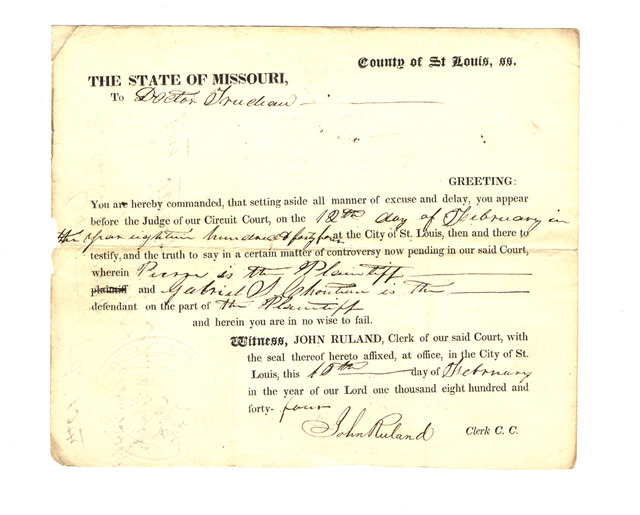 County of St Louis, ss.
THE STATE OF MISSOURI,
To Doctor Trudeau
GREETING:
You are hereby commanded, that setting aside all manner of excuse and delay, you appear
before the Judge of our Circuit Court, on the 12th day of February in
the year eighteen hundred & forty four at the City of St. Louis, then and there to
testify, and the truth to say in a certain matter of controversy now pending in our said Court,
wherein Pierre is the Plaintiff
plaintiff and Gabriel S. Chouteau is the
defendant on the part of the Plaintiff
and herein you are in no wise to fail.
Witness, JOHN RULAND, Clerk of our said Court, with
the seal thereof hereto affixed, at office, in the City of St.
Louis, this 10th day of February
in the year of our Lord one thousand eight hundred and
forty- four
John Ruland Clerk C. C.